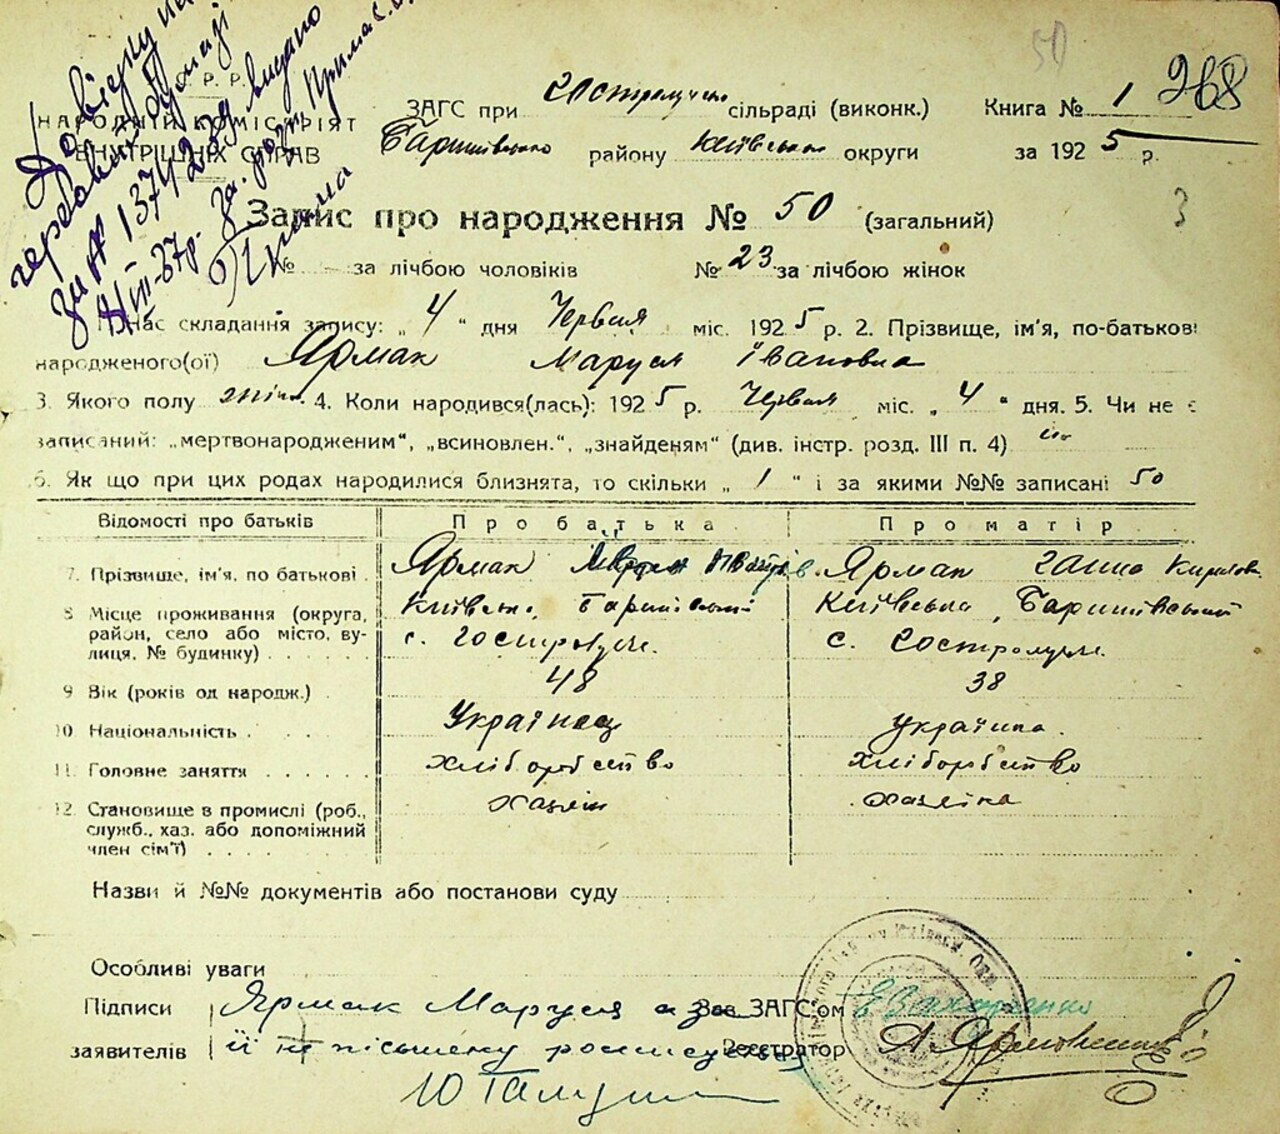 Довідку на
гербовій бумазі
за № 137423 видано
VII-37р. За. розп. Примас.
С. Р. Р.
НАРОДНІЙ КОМІСАРІЯТ
ВНУТРІШНІХ СПРАВ
50
268
ЗАГС при Гостролуцьк. сільраді (виконк.) Книга № 1
Баришівського району Київської округи за 1925 р.
Запис про народження № 50 (загальний)
3
№ – за лічбою чоловіків № 23 за лічбою жінок
Час складання запису: „ 4 “ дня Червня міс. 1925 р. 2. Прізвище, ім'я, по-батькові
народженого(ої) Ярмак Маруся Івановна
3. Якого полу жіноч. 4. Коли народився(лась): 1925 р. Червня міс. „ 4 “ дня. 5. Чи не є
записаний: „мертвонародженим“, „всиновлен.“, „знайденям“ (див. інстр. розд. III п. 4) ні
6. Як що при цих родах народилися близнята, то скільки „ 1 “ і за якими №№ записані 50
Відомості про батьків Про батька Про матір
7. Прізвище, ім'я, по батькові Ярмак Ярмак Ганна Кирилов.
8 Місце проживання (округа, Київськ. Баришівський Київська, Баришівський
район, село або місто, ву- с. Гостролуче. с. Гостролуче.
лиця, № будинку)
9 Вік (років од народж.) 48 38
10 Національність Українец Українка.
11. Головне заняття хліборобство хліборобство
12. Становище в промислі (роб., хазяїн хазяїка
служб., хаз. або допоміжний
член сім'ї)
Назви й №№ документів або постанови суду
Особливі уваги
Підписи Ярмак Маруся а за Зав. ЗАГС'ом Е Захарченко
заявителів її не письмену росписався Реєстратор А. Ярмовський